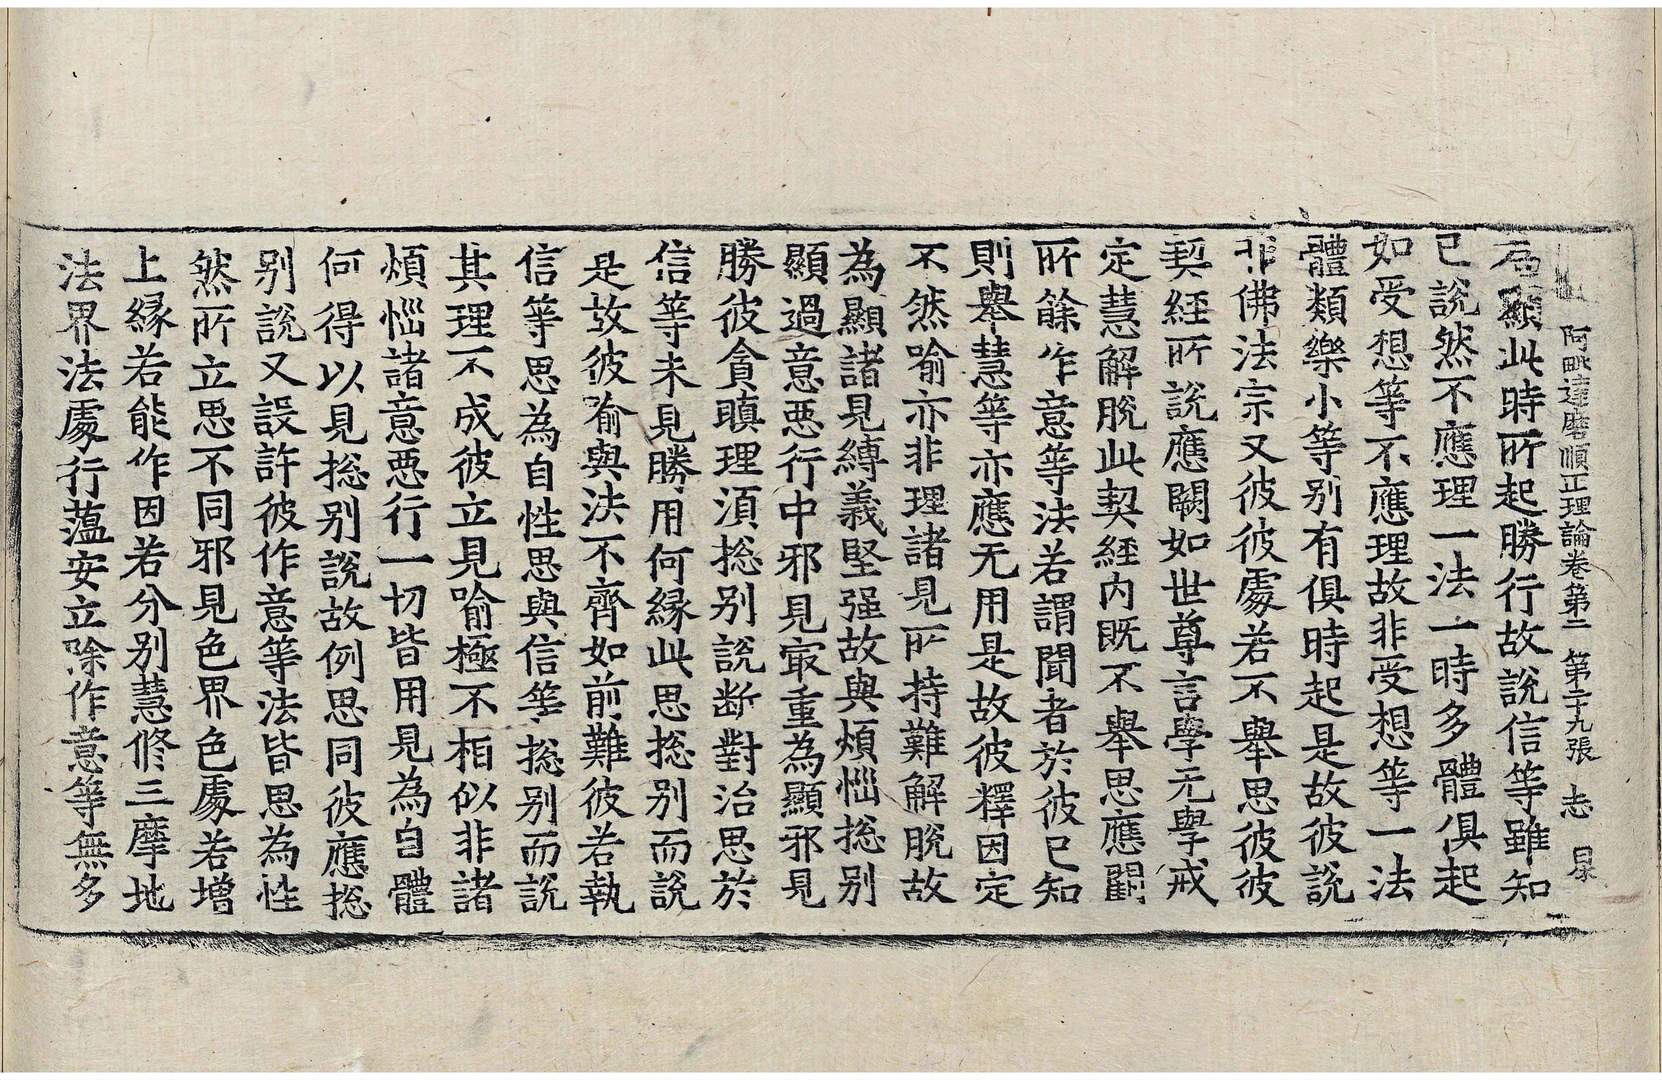 阿毗達磨順正理論卷第二　第二十九張　志　杲
為顯此時所起勝行故說信等雖知
已說然不應理一法一時多體俱起
如受想等不應理故非受想等一法
體類樂小等別有俱時起是故彼說
非佛法宗又彼彼處若不舉思彼彼
契經所說應闕如世尊言學无學戒
定慧解脫此契經內既不舉思應闕
所餘作意等法若謂聞者於彼已知
則舉慧等亦應无用是故彼釋因定
不然喻亦非理諸見所持難解脫故
為顯諸見縛義堅强故與煩惱捴別
顯過意惡行中邪見㝡重為顯邪見
勝彼貪瞋理湏捴別說断對治思於
信等未見勝用何緣此思捴別而說
是故彼喻與法不齊如前難彼若執
信等思為自性思與信等捴別而說
其理不成彼立見喻極不相似非諸
煩惱諸意惡行一切皆用見為自體
何得以見捴別說故例思同彼應捴
別說又設許彼作意等法皆思為性
然所立思不同邪見色界色處若增
上緣若能作因若分別慧修三摩地
法界法處行蕴安立除作意等無多